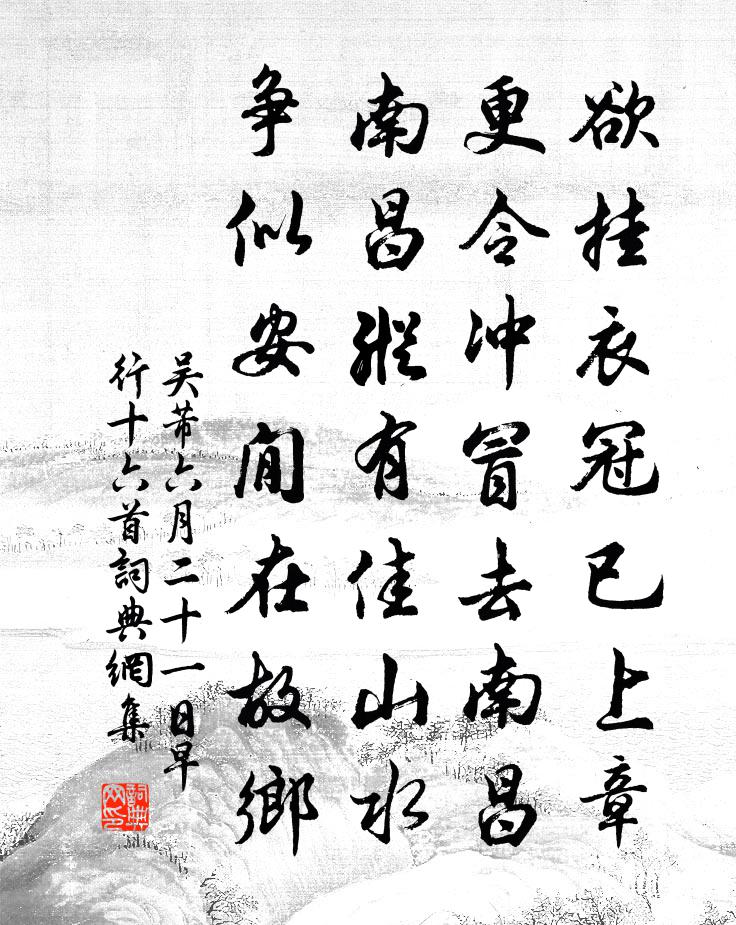 欲挂衣冠已上章
更令冲冒去南昌
南昌縱有佳山水
争似安閒在故鄉
吴芾六月二十一日早
行十六首詞典網集
詞典网印